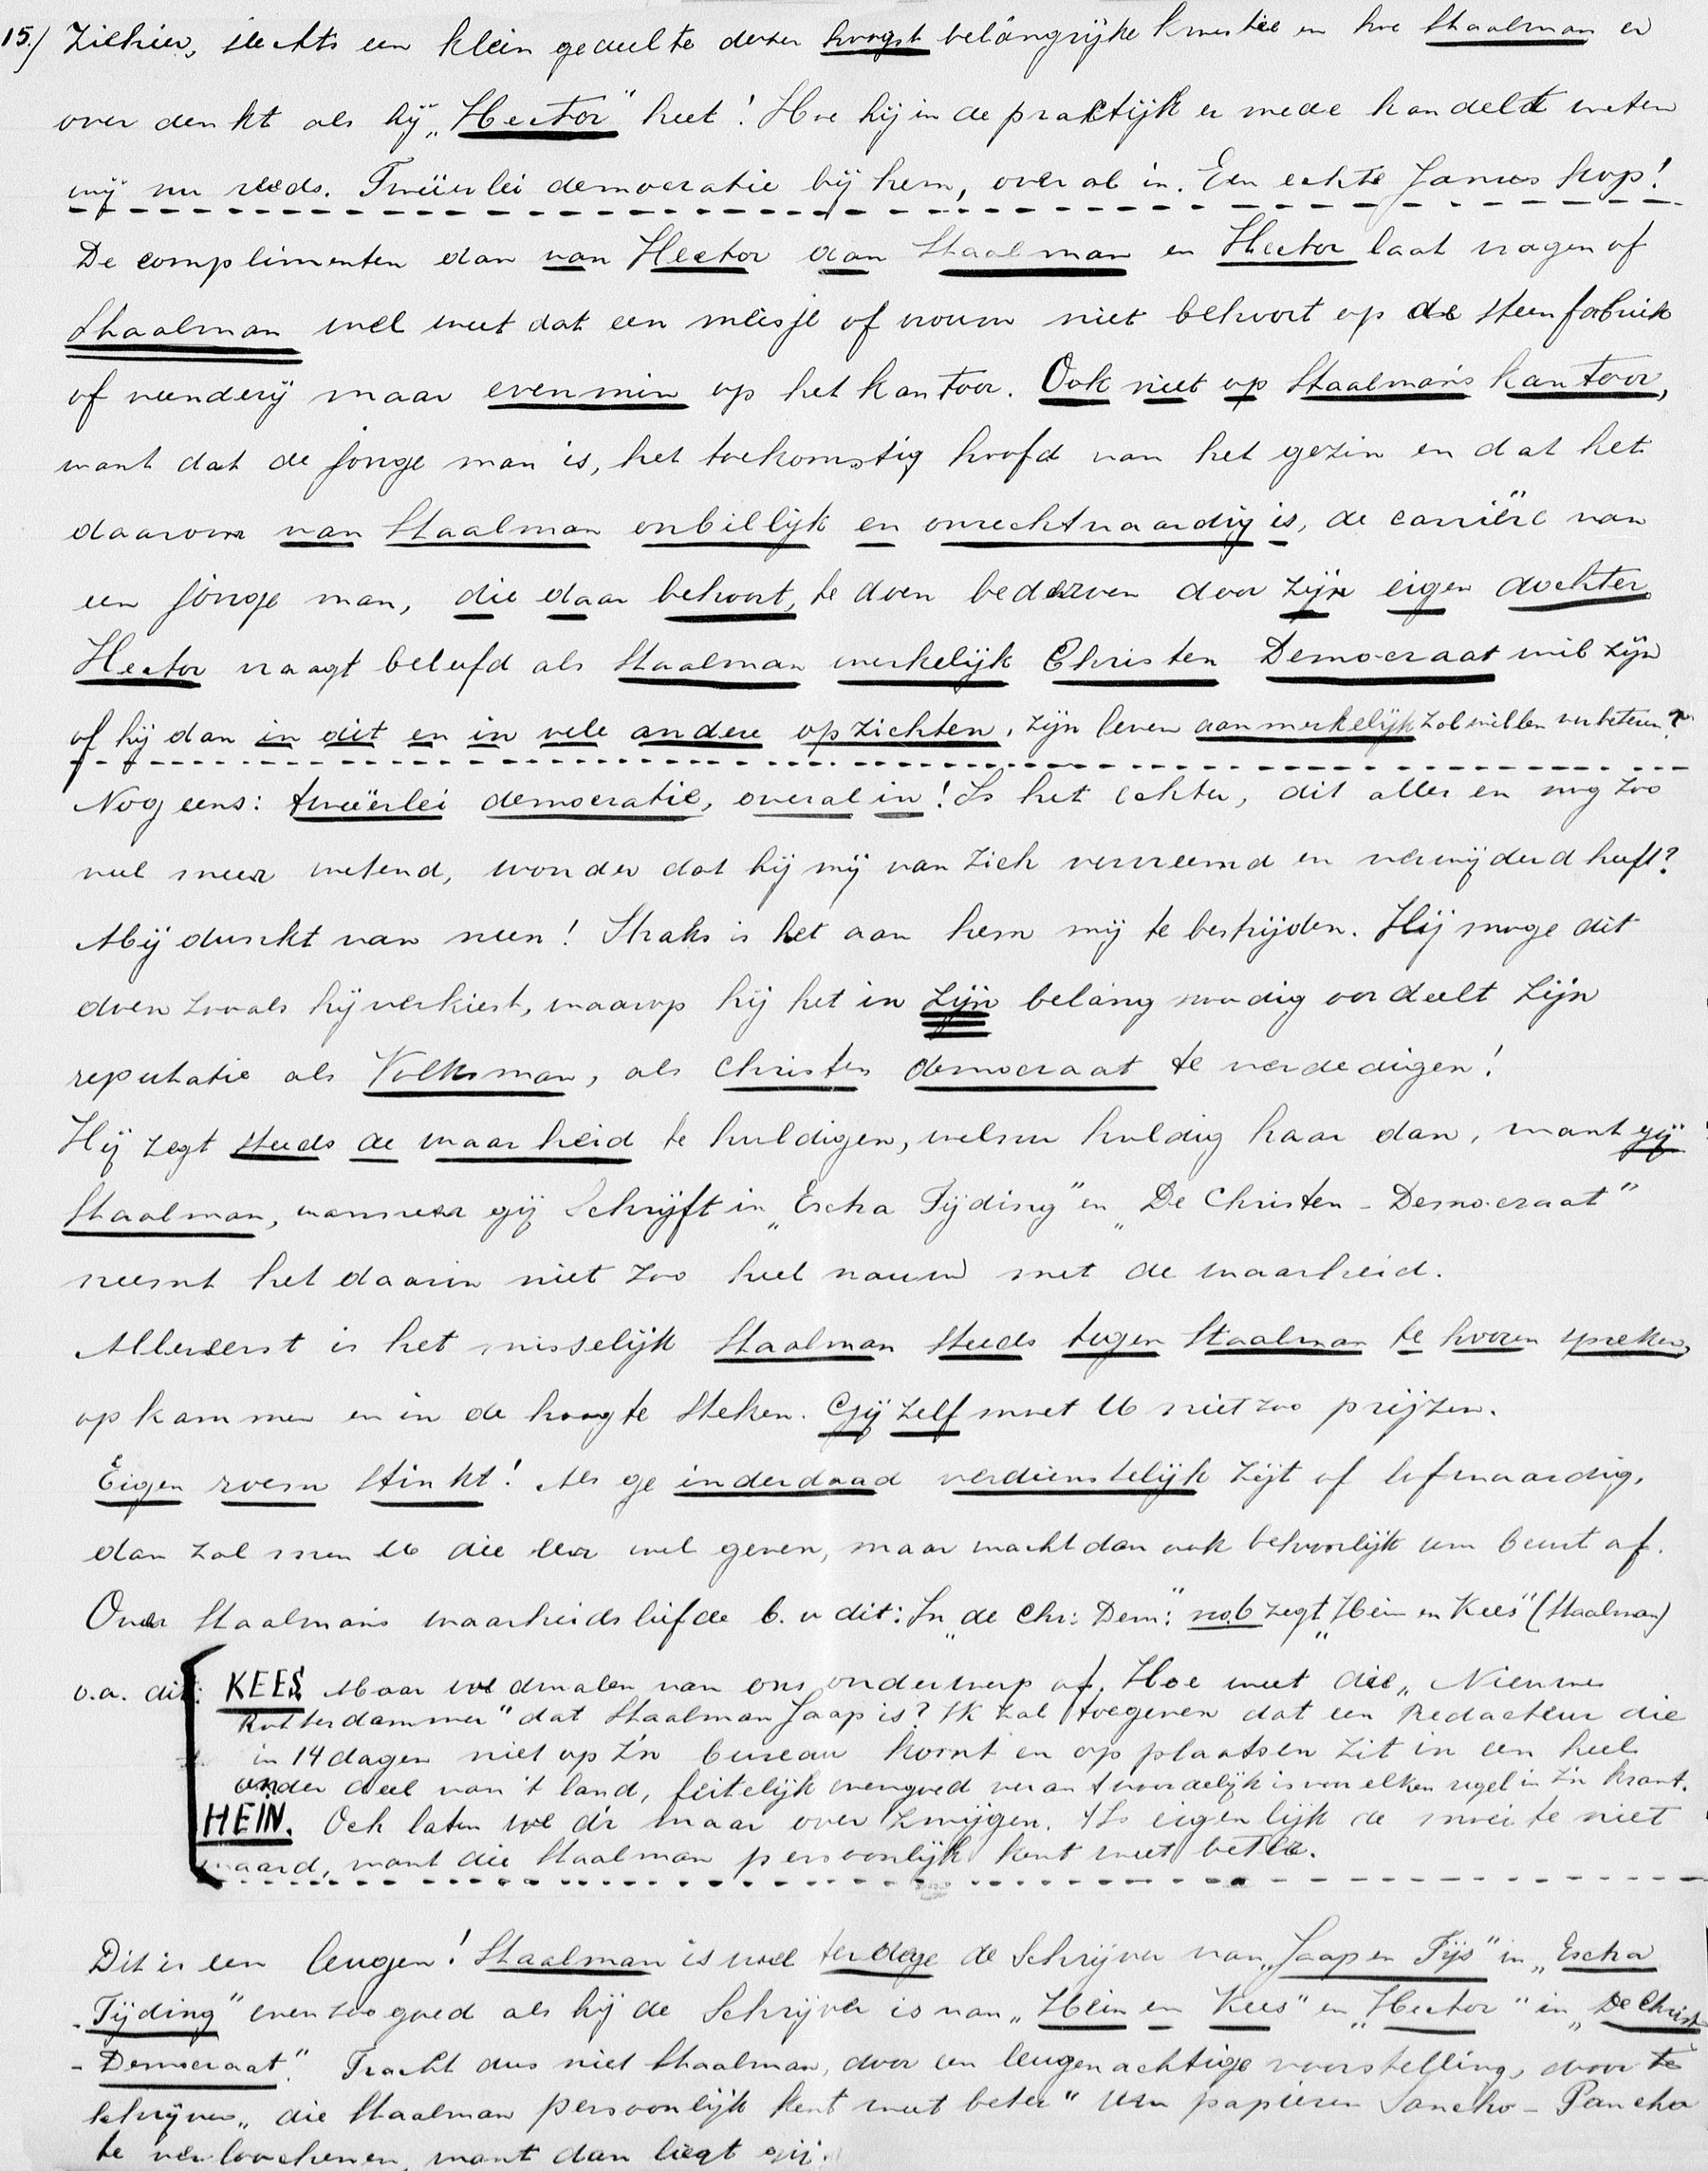 15.) Ziehier, slechts een klein gedeelte dezer hoogst belangrijke kwestie en hoe Staalman er
over denkt als hij „Hector" heet! Hoe hij in de praktijk er mede handeldt weten
wij nu reeds. Tweeërlei democratie bij hem, overal in. Een echte Janus kop!
De complimenten dan van Hector aan Staalman en Hector laat vragen of
Staalman wel weet dat een meisje of vrouw niet behoort op de steenfabriek
of veenderij maar evenmin op het kantoor. Ook niet op Staalman's kantoor,
want dat de jonge man is, het toekomstig hoofd van het gezin en dat het
daarom van Staalman onbillijk en onrechtvaardig is, de carrière van
een jonge man, die daar behoort, te doen bederven door zijn eigen dochter.
Hector vraagt beleefd als Staalman werkelijk Christen Democraat wil zijn
of hij dan in dit en in vele andere opzichten, zijn leven aanmerkelijk zal willen verbeteren?
Nog eens: tweeërlei democratie, overal in! Is het echter, dit alles en nog zoo
veel meer wetend, wonder dat hij mij van zich vervreemd en verwijderd heeft?
Mij dunkt van neen! Straks is het aan hem mij te bestrijden. Hij moge dit
doen zooals hij verkiest, waarop hij het in zijn belang noodig oordeelt zijn
reputatie als Volksman, als Christen democraat te verdedigen!
Hij zegt steeds de waarheid te huldigen, welnu huldig haar dan, want gij
Staalman, wanneer gij schrijft in „Escha Tijding" en „De Christen - Democraat"
neemt het daarin niet zoo heel nauw met de waarheid.
Allereerst is het misselijk Staalman steeds tegen Staalman te hooren spreken,
opkammen en in de hoogte steken. Gij zelf moet U niet zoo prijzen.
Eigen roem stinkt! Als ge inderdaad verdienstelijk zijt of lofwaardig,
dan zal men U die eer wel geven, maar wacht dan ook behoorlijk uw beurt af.
Over Staalman's waarheidsliefde b.v dit: In „de Chr: Dem:" no.6 zegt „Hein en Kees" (Staalman)
o.a. dit: KEES. Maar we dwalen van ons onderwerp af. Hoe weet die „Nieuwe
Rotterdammer" dat Staalman Jaap is? Ik zal toegeven dat een Redacteur die
in 14 dagen niet op z'n bureau komt en op plaatsen zit in een heel
ander deel van 't land, feitelijk evengoed verantwoordelijk is voor elken regel in z'n krant.
HEIN. Och laten we d'r maar over zwijgen. 't Is eigenlijk de moeite niet
waard, want die Staalman persoonlijk kent weet beter.
Dit is een leugen! Staalman is wel terdege de Schrijver van „Jaap en Tijs" in „Escha
Tijding" even zoo goed als hij de Schrijver is van „Hein en Kees" en „Hector" in „De Christ
- Democraat". Tracht dus niet Staalman, door een leugenachtige voorstelling, door te
schrijven „die Staalman persoonlijk kent weet beter" uw papieren Sancho - Pancha
te verloochenen, want dan liegt gij.